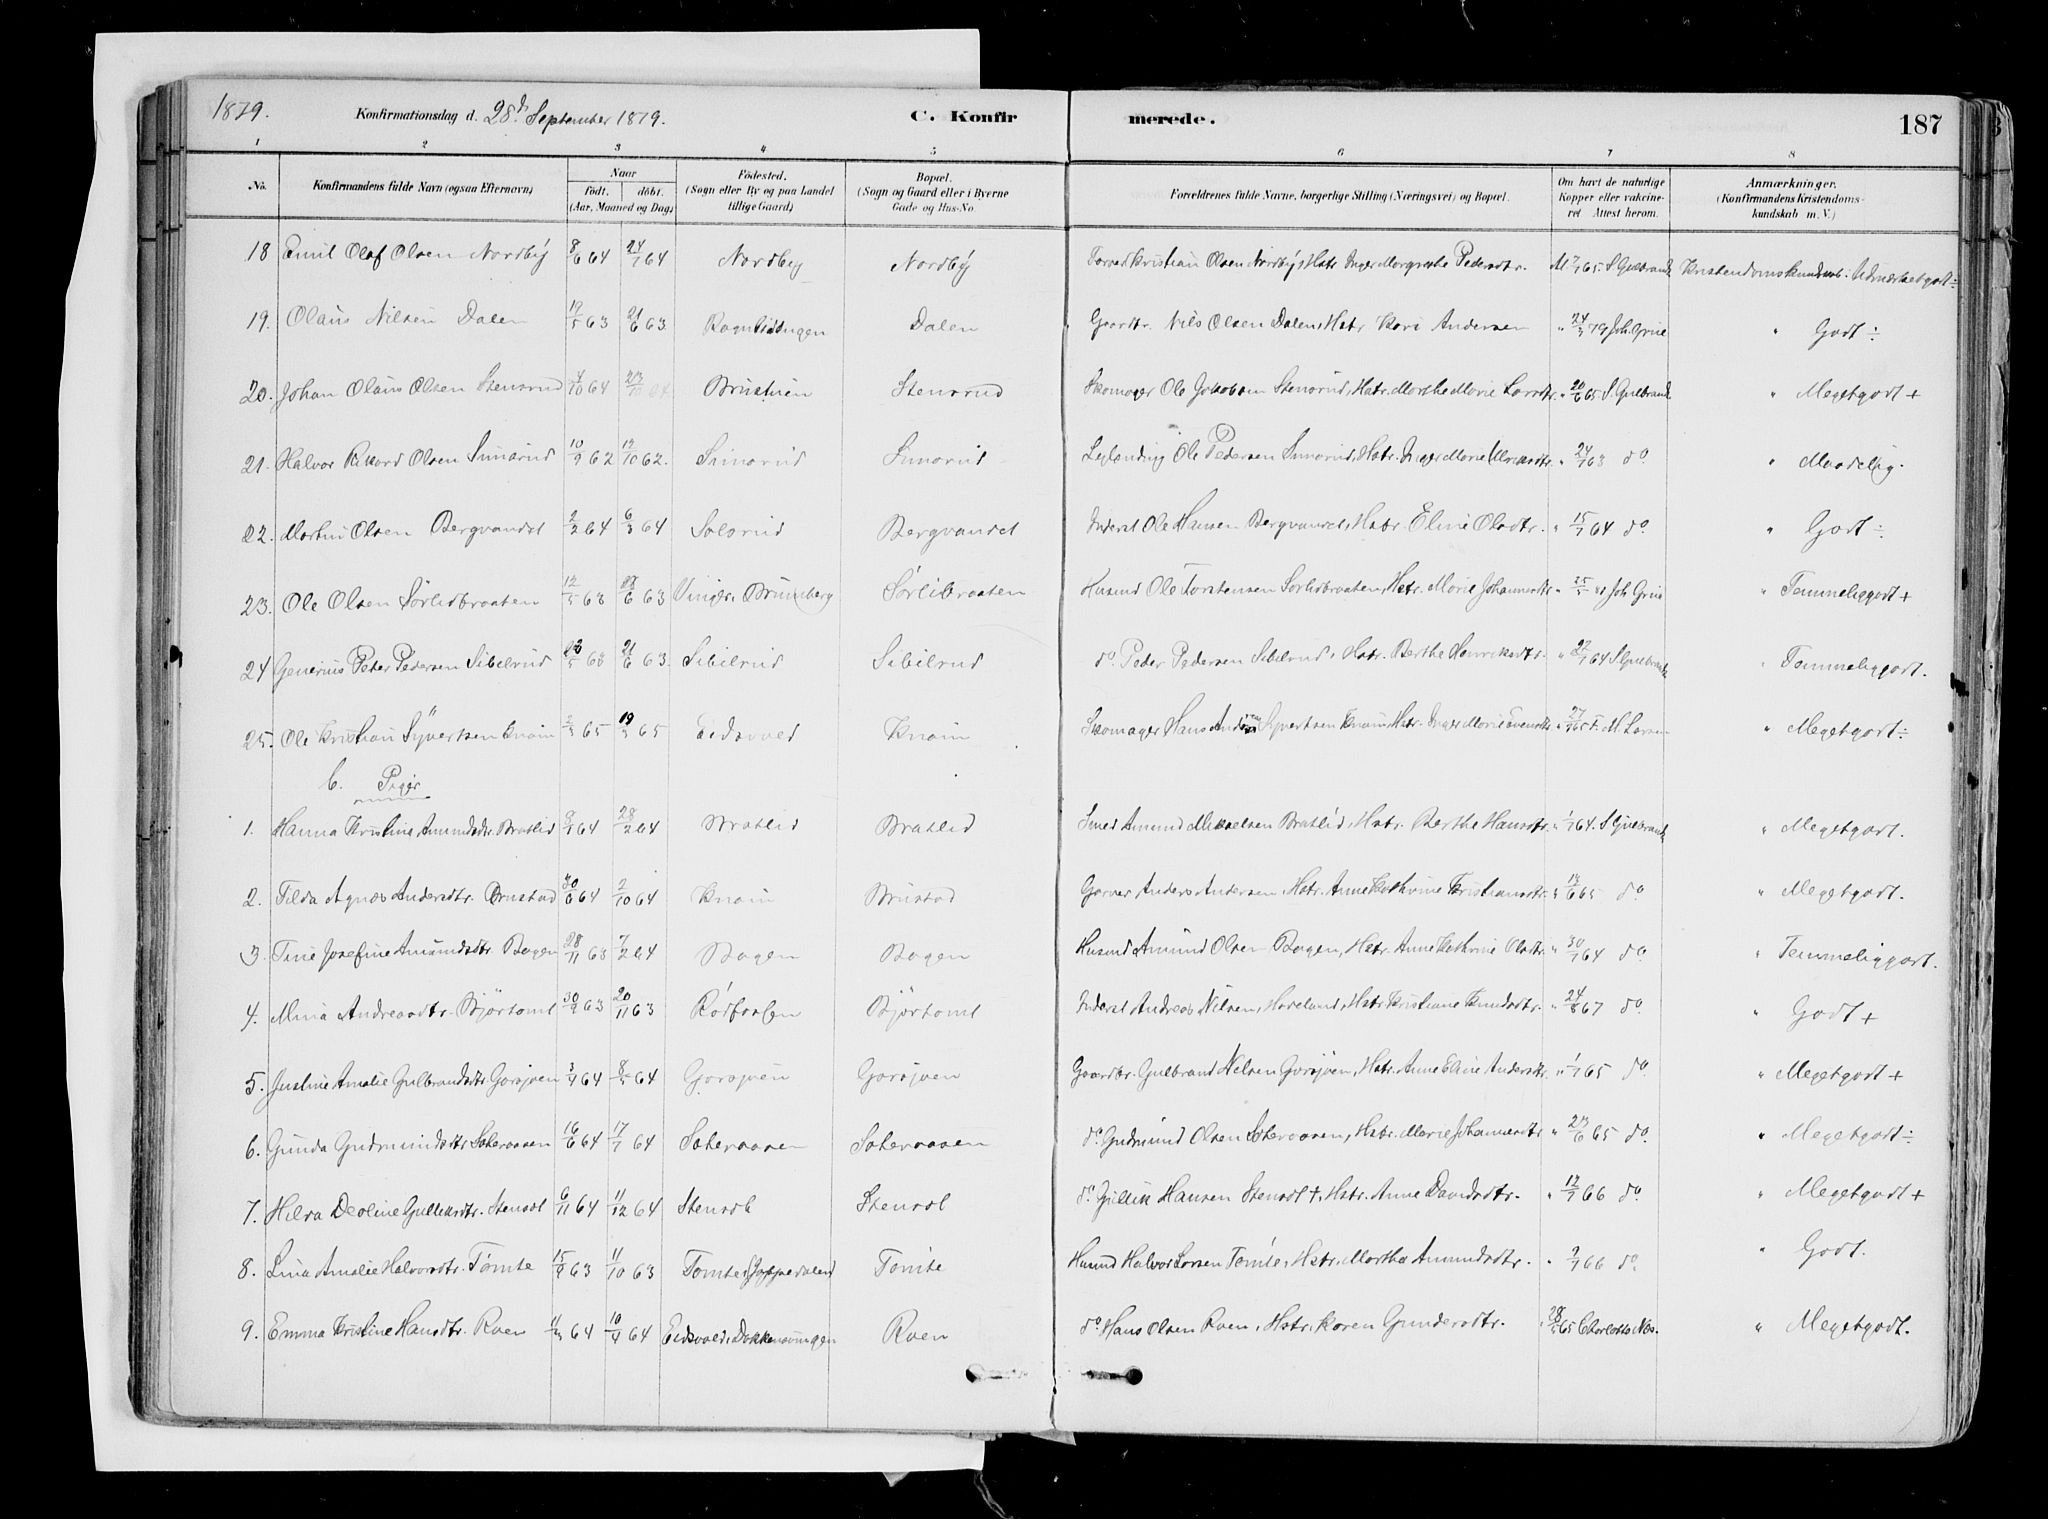 1879. Konfirmationsdag d. 28de September 1879. C. Konfir merede. 187
1 2 3 4 5 6 7 8
No. Konfirmandens fulde Navn (ogsaa Efternavn) Naar født. døbt. (Aar, Maaned og Dag) Fødested. (Sogn eller By og paa Landet tillige Gaard) Bopæl. (Sogn og Gaard eller i Byerne Gade og Hus-No. Forældrenes fulde Navne, borgerlige Stilling (Næringsvei) og Bopæl. Om havt de naturlige Kopper eller vakcineret. Attest herom. Anmærkninger. (Konfirmandens Kristendomskundskab m. V.)
18 Emil Olaf Olsen Nordby 8/6 64 24/7 64 Nordby Nordby Kristian Olsen Nordby, Hstr. Inger Margrethe Pedersdtr. 65 S. Gulbrands Kristendomskundskab: Udmærketgodt÷
19. Olaus Nilsen Dalen 19/5 63 21/6 63 Dalen Gaardbr. Nils Olsen Dalen, Hstr. Kari Andersen " 24/3 79 Joh. Grue " Godt ÷
20. Johan Olaus Olsen Stensrud 4/10 64 23/10 64 Brustuen Stensrud Skomager Ole Jakobsen Stensrud, Hstr. Marthe Marie Larsdtr. " 20/6 65 S. Gulbrands " Megetgodt +
21. Halvor Rikard Olsen Simarud 10/9 62 12/10 62. Simarud Simarud Leilænding Ole Pedersen Simarud, Hstr. Inger Marie " 24/7 63 do " Maadelig.
22. Martin Olsen Bergvandet 2/2 64 6/3 64 Solerud Bergvandet Inderst Ole Hansen Bergvandet, Hstr. Eline Olsdtr. " 15/7 64 do " Godt ÷
23. Ole Olsen Sørlibraaten 12/5 63 28/6 63 Vinger, Brumberg Sørlibraaten Husmd Ole Torstensen Sørlibraaten, Hstr. Marie Johannesdtr. " 25/5 Joh. Grue " Temmeliggodt +
24 Generius Peter Pedersen Sibilrud 23/5 63 21/6 63. Sibilrud Sibilrud do Peder Pedersen Sibilrud, Hstr. Berthe Henriksdtr. " 22/7 64 S. Gulbrands " Temmeliggodt.
25. Ole Kristian Syvertsen Knain 2/3 65 19/3 65 Eidsvold Knain Skomager Hans Syvertsen Knain, Hstr. Inger Marie Evensdtr. " 27/9 65 F. M. Larsen " Megetgodt ÷
b. Piger
1. Hanna Kristine Amundsdtr. Bratlid 9/1 64 28/2 64 Bratlid Bratlid Smed Amund Mikkelsen Bratlid, Hstr. Berthe Hansdtr. " 1/7 64. S. Gulbrands " Megetgodt.
2. Tilda Agnes Andersdtr. Brustad 30/6 64 2/10 64 Knain Brustad Garver Anders Andersen, Hstr. Anne Kathrine Kristiansdtr. " 13/6 65 do " Megetgodt.
3. Tine Josefine Amundsdtr. Bagen 28/11 63 7/2 64 Bagen Bagen Husmd Amund Olsen Bagen, Hstr. Anne Kathrine Olsdtr. " 30/7 64 do " Temmeliggodt.
4. Mina Andreasdtr. Bjørtomt 30/9 63 20/11 63 Rødfossen Bjørtomt Inderst Andreas Nilsen, Haveland, Hstr. Kristiane Knudsdtr. " 24/8 67 do " Godt +
5. Justine Amalie Gulbrandsdtr. Gorsjøen 3/4 64 8/5 64 Gorsjøen Gorsjøen Gaardbr. Gulbrand Nilsen Gorsjøen, Hstr. Anne Eline Andersdtr. " 1/7 65 do " Megetgodt +
6. Gunda Gudmundsdtr. Sæteraasen 16/6 64 17/7 64 Sæteraasen Sæteraasen do Gudmund Olsen Sæteraasen, Hstr. Marie Johannesdtr. " 23/6 65 do " Megetgodt ÷
7. Hilda Deoline Gulliksdtr. Stensøl 6/11 64 11/12 64 Stensøl Stensøl do Gullik Hansen Stensøl †, Hstr. Anne Davidsdtr. " 12/7 66 do " Megetgodt +
8. Lina Amalie Halvorsdtr. Tømte 15/9 63 11/10 63 Tømte Tømte Husmd Halvor Larsen Tømte, Hstr. Marthe Amundsdtr. " 2/7 66 do " Godt.
9. Emma Kristine Hansdtr. Roen 64 10/4 64 Eidsvold, Dokkensvingen Roen do Hans Olsen Roen, Hstr. Karen Gundersdtr. " 28/5 65 Charlotte Nes. " Megetgodt.